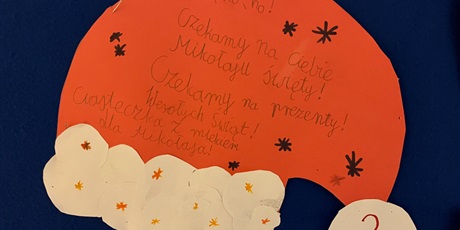 Czekamy na Ciebie
Mikołaju święty!
Czekamy na prezenty!
Wesołych Świąt!
Ciasteczka z mlekiem
dla Mikołaja!
2